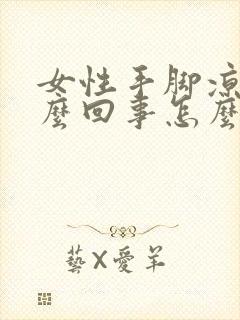 女性手脚凉
麼回事怎麼
藝X愛羊